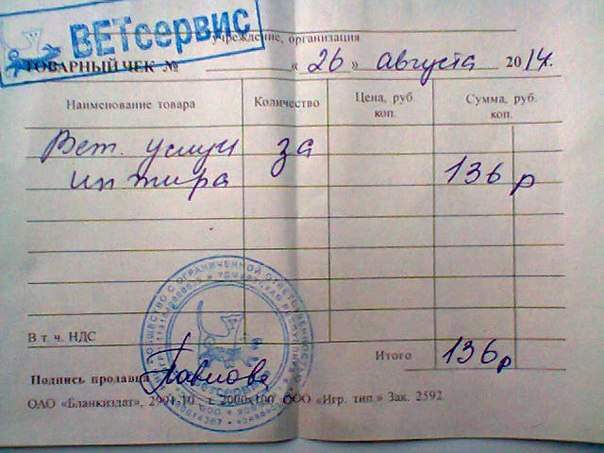 ВЕТсервис
учреждение, организация
ТОВАРНЫЙ ЧЕК № « 26 » августа 2014.
Наименование товара Количество Цена, руб. коп. Сумма, руб. коп.
Вет. услуги за
136 р
В т. ч. НДС
Итого 136 р
Подпись продавца Павлова
ОАО «Бланкиздат», 2000х100. ООО «Игр. тип.» Зак. 2592.